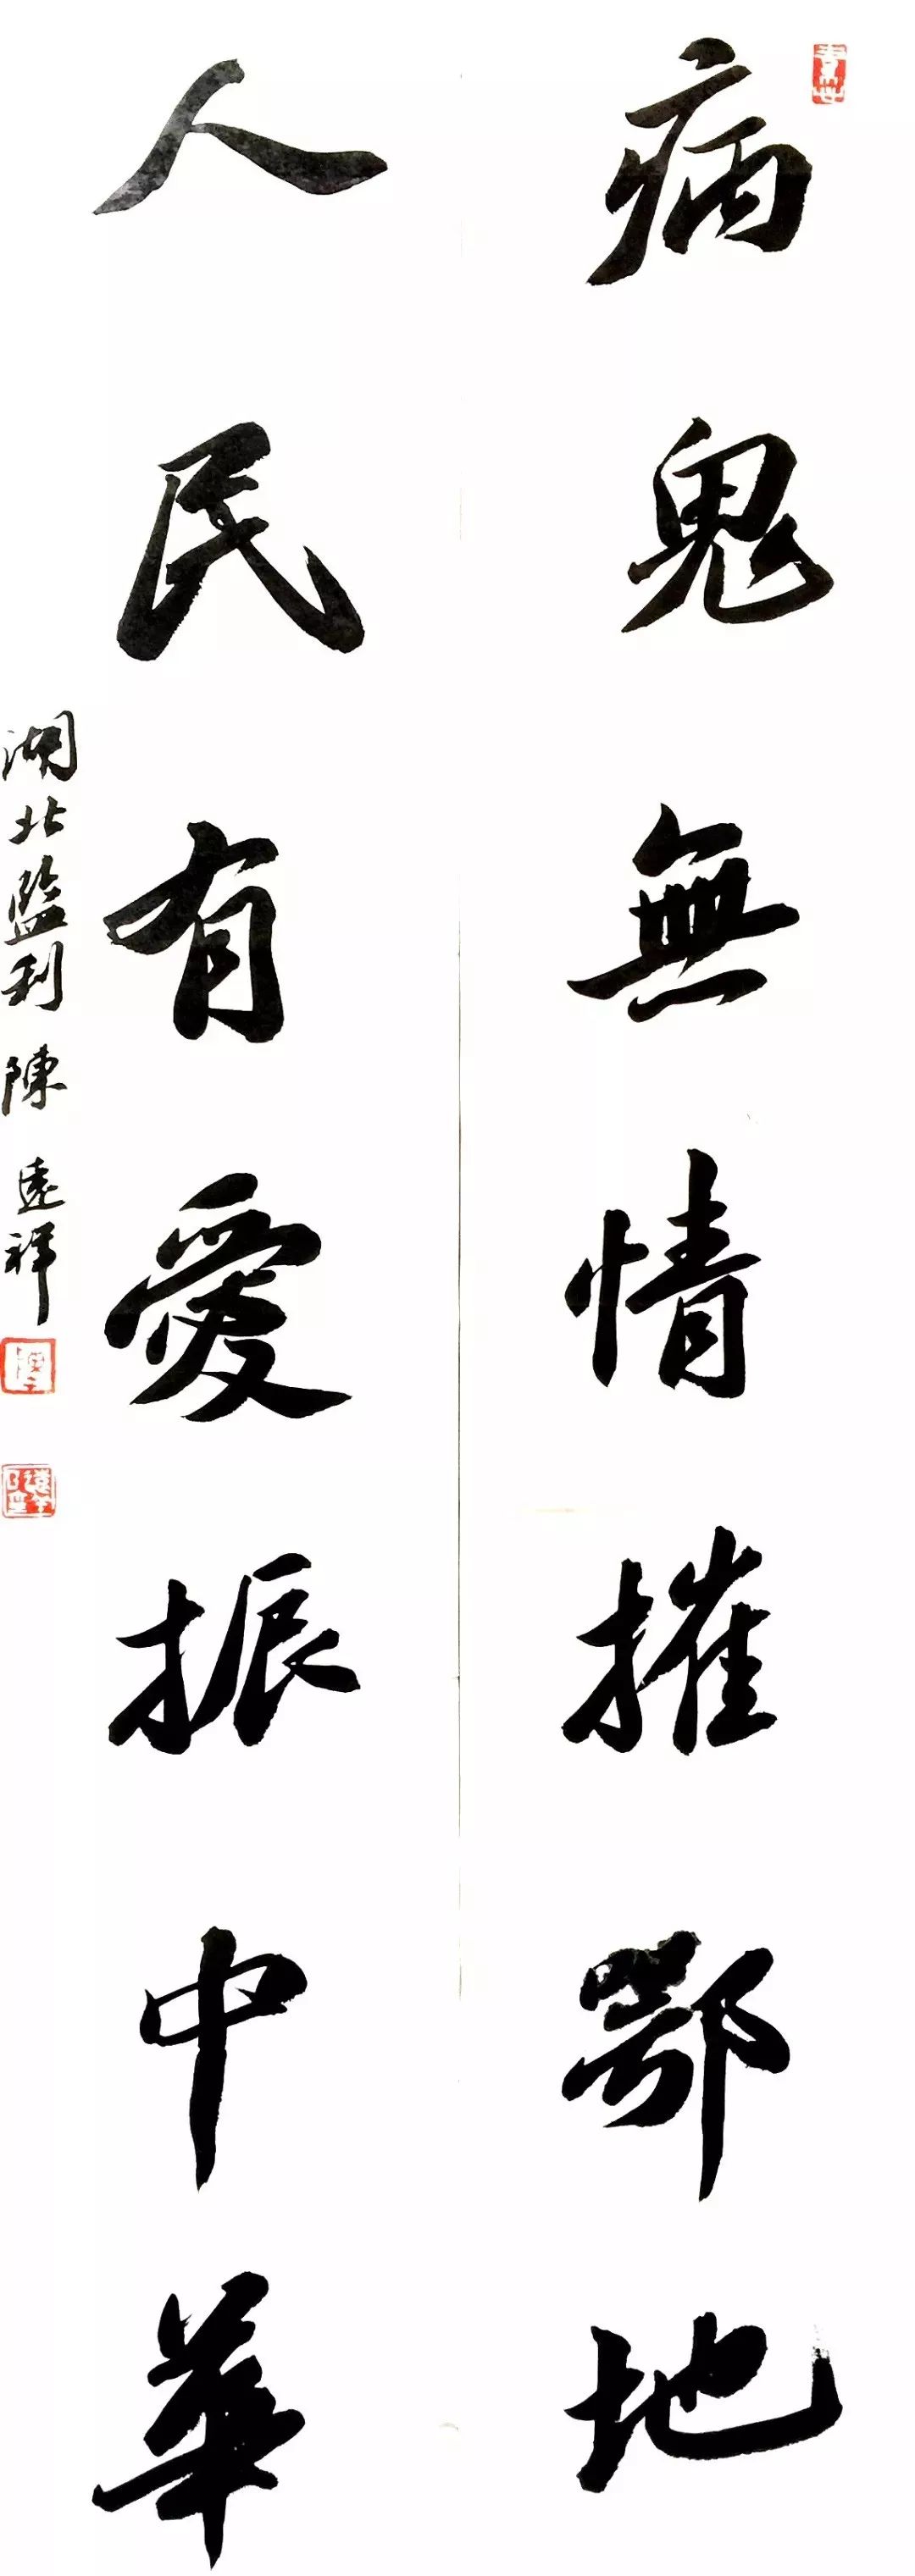 病鬼無情摧鄂地
人民有愛振中華
湖北監利 陳遠祥